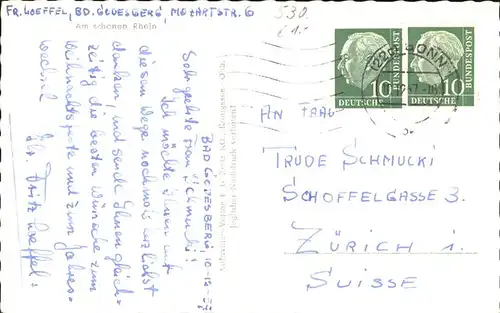 FR. LOEFFEL, BD. GODESBERG, MOZARTSTR. 6
Am schönen Rhein
530
BAD GODESBERG, 10-12-
Sehr geehrte Frau Schmucki!
Ich möchte Ihnen auf
diesem Wege nochmals herzlichst
danken und sende Ihnen gleich-
zeitig die besten Wünsche zum
Weihnachtsfeste und zum Jahres-
wechsel
Ihr Fritz Loeffel
10 DEUTSCHE BUNDESPOST
10 DEUTSCHE BUNDESPOST
BONN
AN FRAU
TRUDE SCHMUCKI
SCHOFFELGASSE 3
ZÜRICH 1.
SUISSE